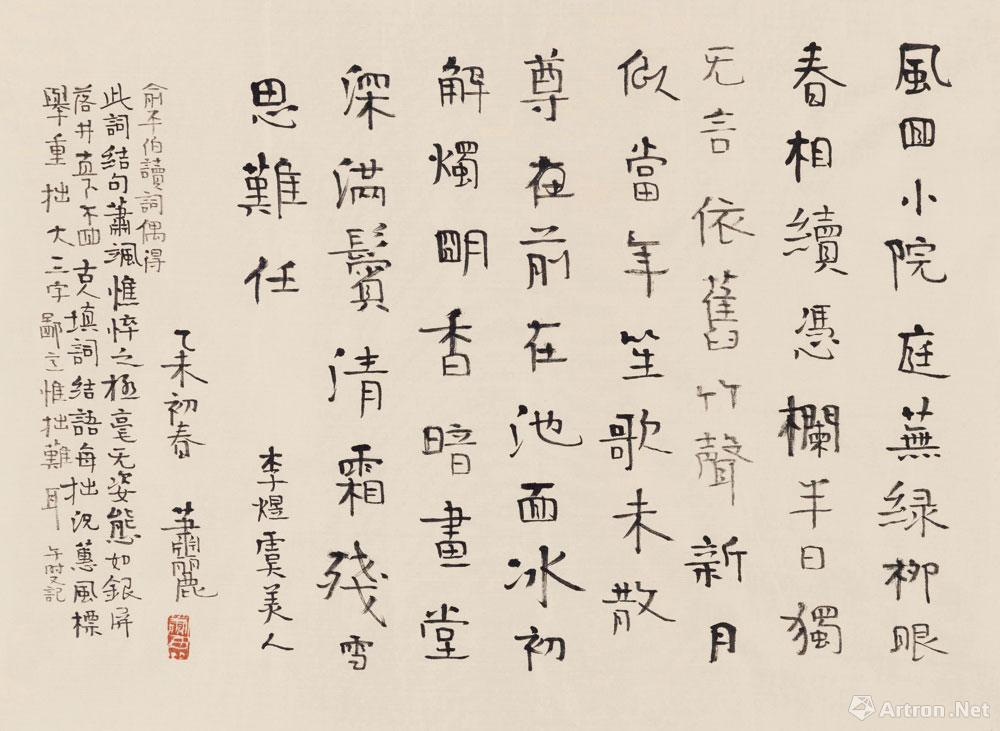 風回小院庭蕪绿柳眼
春相續憑欄半日獨
无言依舊竹聲新月
似當年笙歌未散
尊在前在池面冰初
解燭明香暗畫堂
深滿鬢清霜殘雪
思難任
李煜虞美人
乙未初春 蕭麗
俞平伯讀詞偶得
此詞結句蕭颯憔悴之極毫无姿態如銀屏
落井直下不回古人填詞結語每拙況蕙風標
舉重拙大三字鄙意惟拙難耳 午雙記
Artron.Net